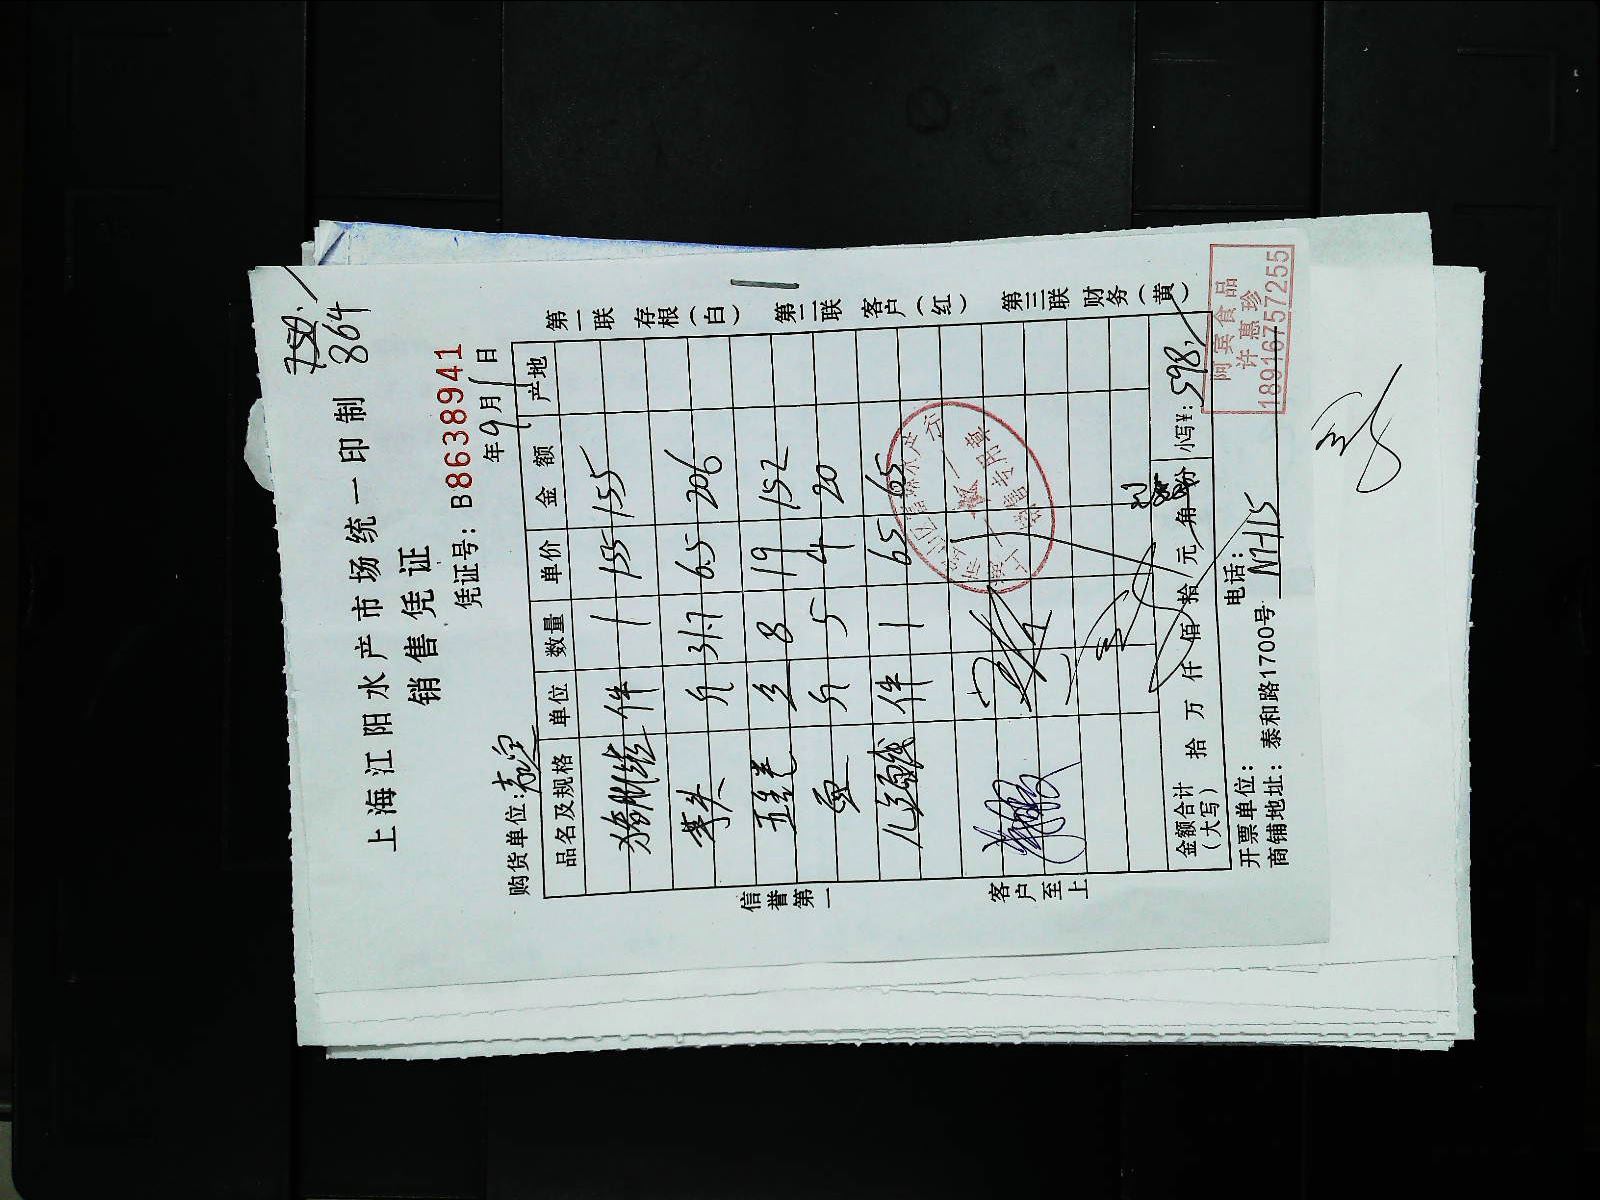 864
上海江阳水产市场统一印制
销售凭证
凭证号：B8638941
购货单位：嘉定
年9月1日
品名及规格 单位 数量 单价 金额 产地
件 1 155 155
斤 31.7 6.5 206
8 19 152
斤 5 4 20
件 1 65 65
金额合计（大写） 拾 万 仟 佰 拾 元 角 份 小写¥：598
开票单位： 电话：
商铺地址：泰和路1700号 M-115
信誉第一
客户至上
第一联 存根（白）
第二联 客户（红）
第三联 财务（黄）
阿宾食品
许惠珍
18916757255